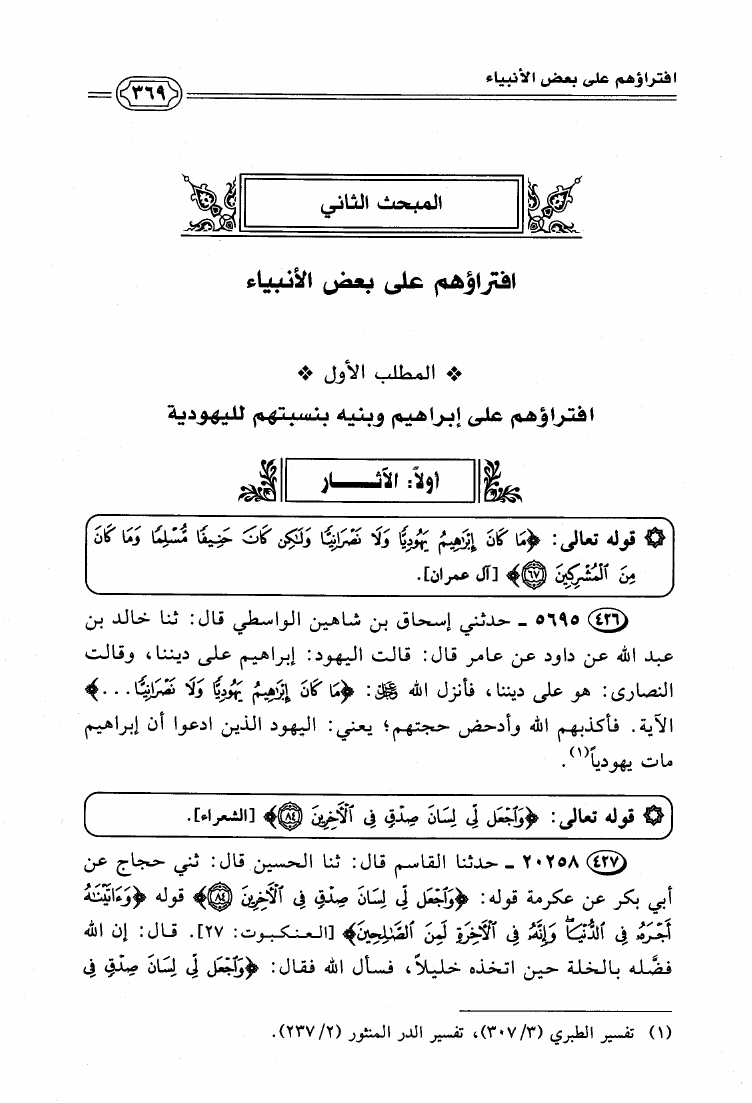 افتراؤهم على بعض الأنبياء
٣٦٩
المبحث الثاني
افتراؤهم على بعض الأنبياء
❖ المطلب الأول ❖
افتراؤهم على إبراهيم وبنيه بنسبتهم لليهودية
أولاً: الآثـــــار
۞ قوله تعالى: ﴿مَا كَانَ إِبْرَاهِيمُ يَهُودِيًّا وَلَا نَصْرَانِيًّا وَلَكِن كَانَ حَنِيفًا مُّسْلِمًا وَمَا كَانَ
مِنَ ٱلْمُشْرِكِينَ ٦٧﴾ [آل عمران].
٤٢٦ ٥٦٩٥ - حدثني إسحاق بن شاهين الواسطي قال: ثنا خالد بن
عبد الله عن داود عن عامر قال: قالت اليهود: إبراهيم على ديننا، وقالت
النصارى: هو على ديننا، فأنزل الله ﷻ: ﴿مَا كَانَ إِبْرَاهِيمُ يَهُودِيًّا وَلَا نَصْرَانِيًّا...﴾
الآية. فأكذبهم الله وأدحض حجتهم؛ يعني: اليهود الذين ادعوا أن إبراهيم
مات يهودياً(١).
۞ قوله تعالى: ﴿وَٱجْعَل لِّي لِسَانَ صِدْقٍ فِي ٱلْآخِرِينَ ٨٤﴾ [الشعراء].
٤٢٧ ٢٠٢٥٨ - حدثنا القاسم قال: ثنا الحسين قال: ثني حجاج عن
أبي بكر عن عكرمة قوله: ﴿وَٱجْعَل لِّي لِسَانَ صِدْقٍ فِي ٱلْآخِرِينَ ٨٤﴾ قوله ﴿وَءَاتَيْنَٰهُ
أَجْرَهُۥ فِي ٱلدُّنْيَا ۖ وَإِنَّهُۥ فِي ٱلْآخِرَةِ لَمِنَ ٱلصَّٰلِحِينَ﴾ [العنكبوت: ٢٧]. قال: إن الله
فضَّله بالخلة حين اتخذه خليلاً، فسأل الله فقال: ﴿وَٱجْعَل لِّي لِسَانَ صِدْقٍ فِي
(١) تفسير الطبري (٣٠٧/٣)، تفسير الدر المنثور (٢٣٧/٢).